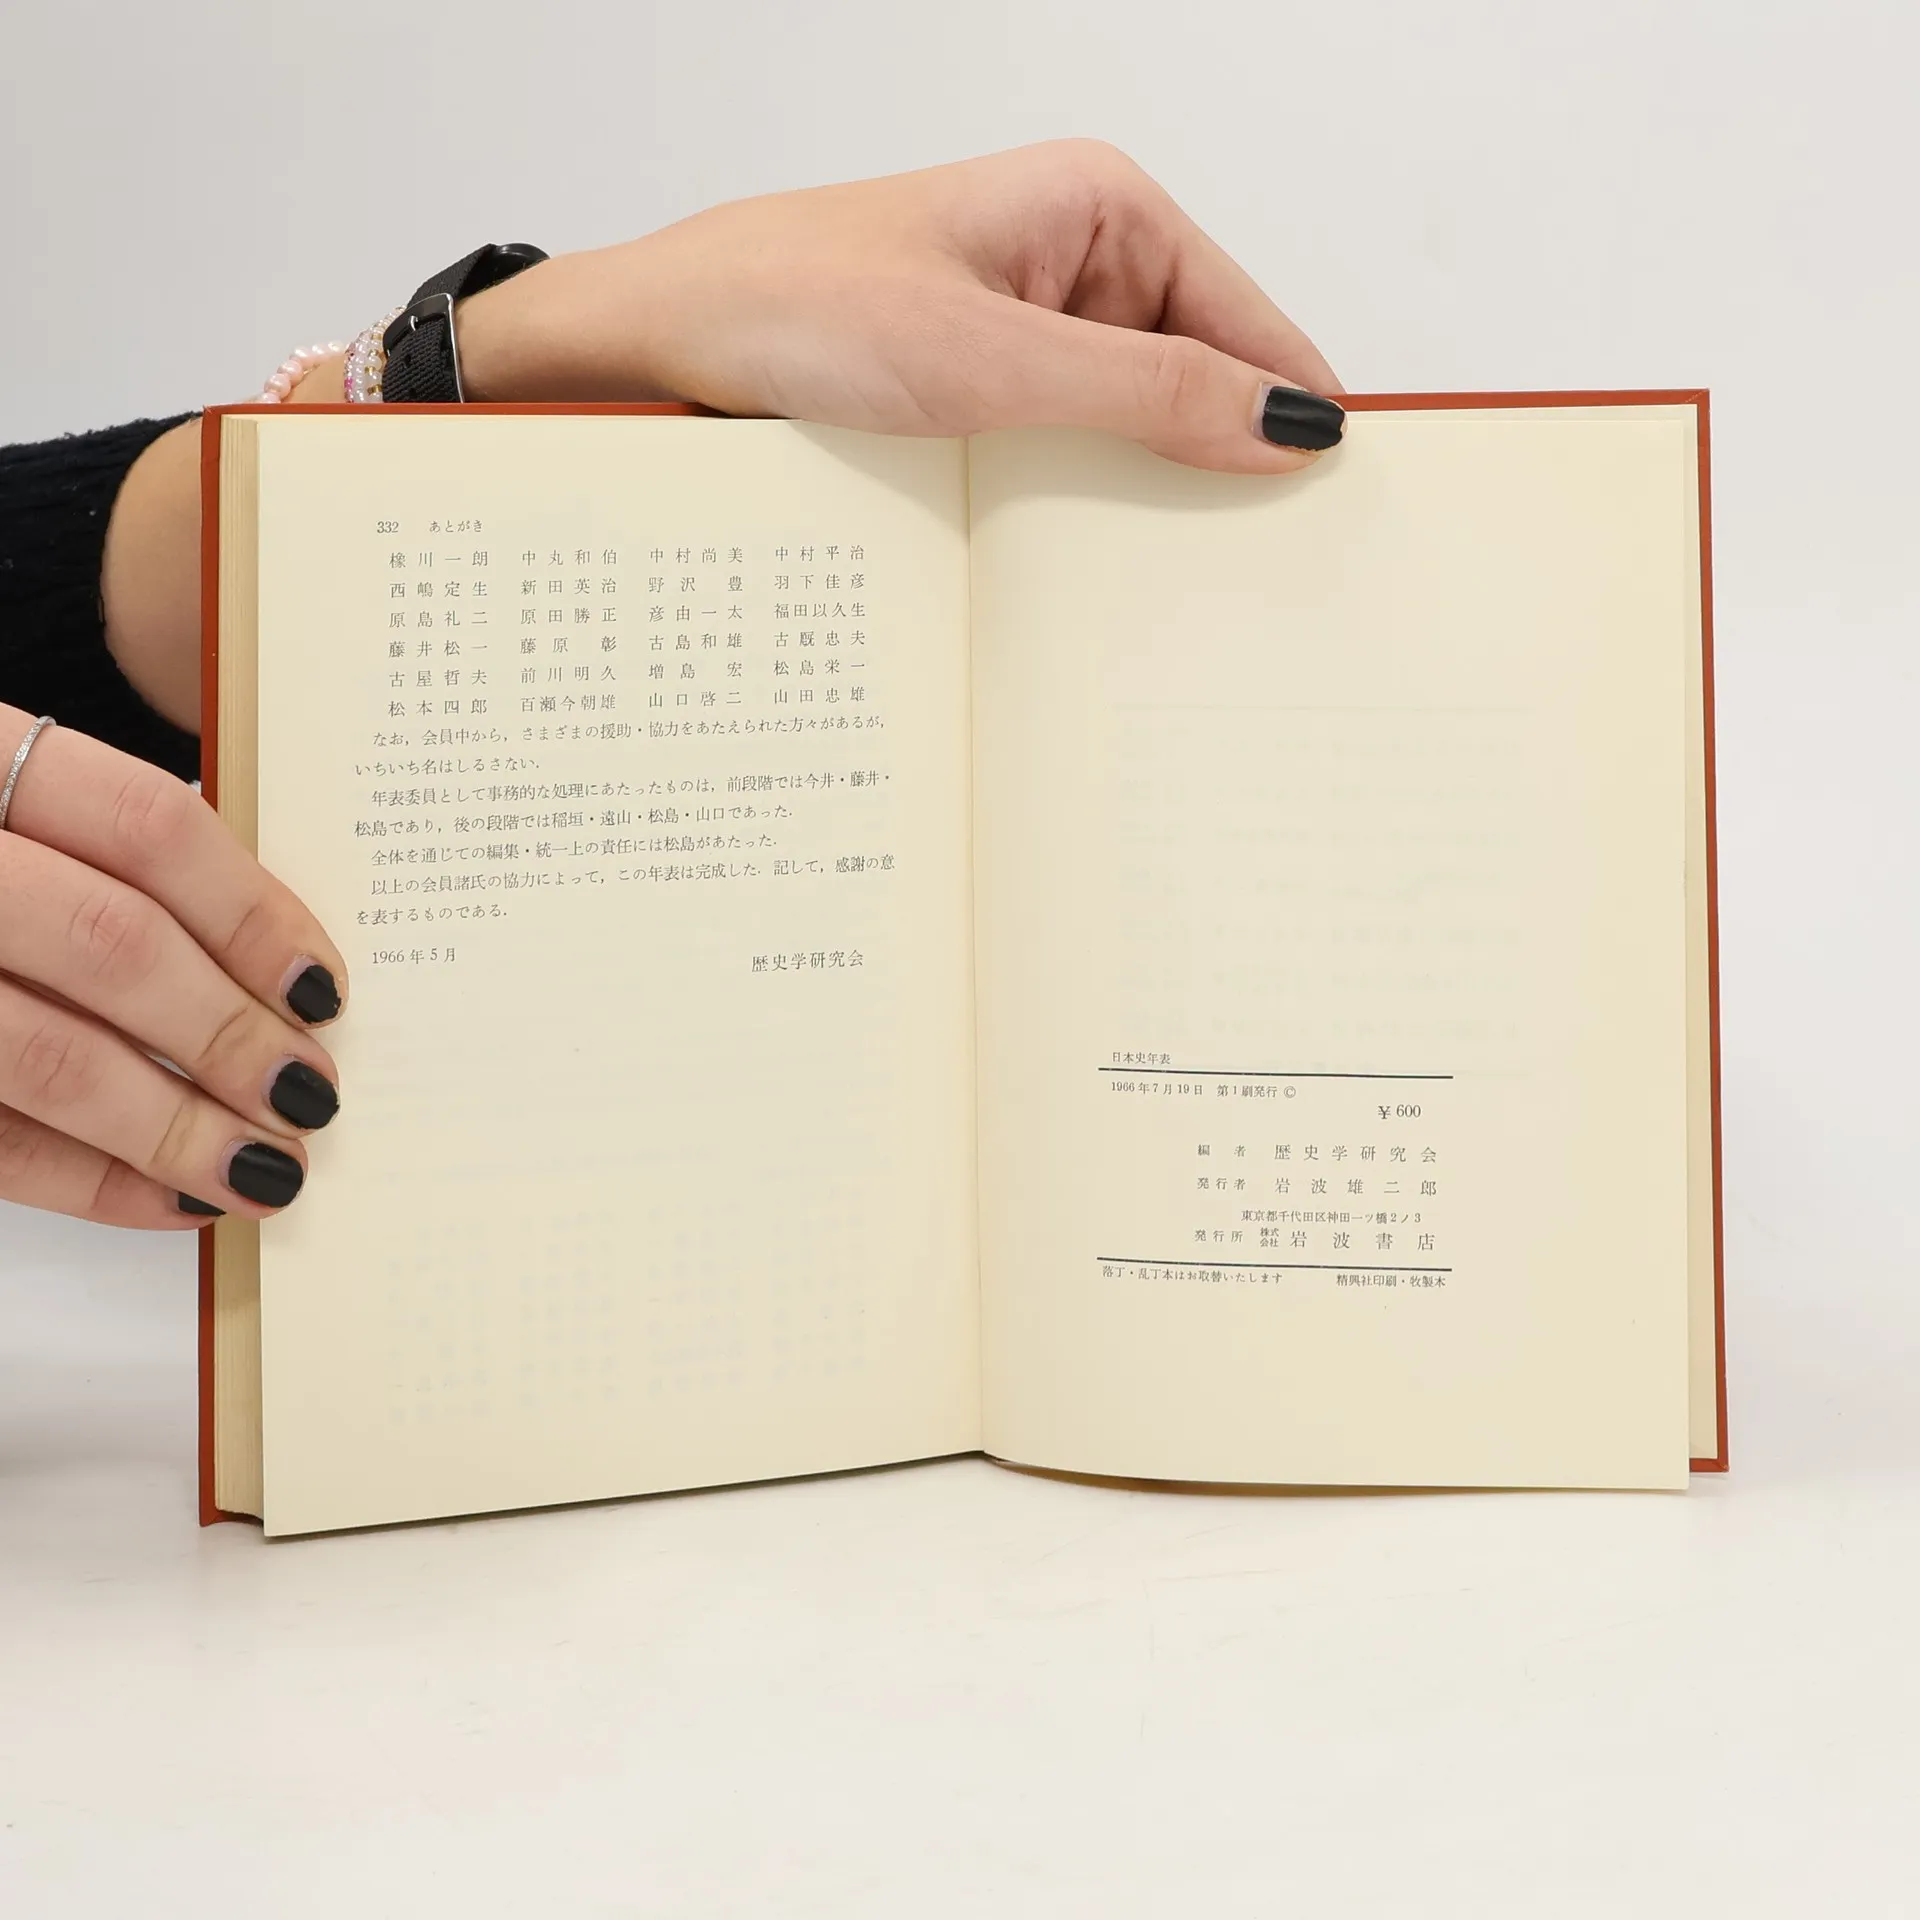 332　あとがき
橡川一朗　中丸和伯　中村尚美　中村平治
西嶋定生　新田英治　野沢　豊　羽下佳彦
原島礼二　原田勝正　彦由一太　福田以久生
藤井松一　藤原　彰　古島和雄　古厩忠夫
古屋哲夫　前川明久　増島　宏　松島栄一
松本四郎　百瀬今朝雄　山口啓二　山田忠雄
なお，会員中から，さまざまの援助・協力をあたえられた方々があるが，
いちいち名はしるさない．
年表委員として事務的な処理にあたったものは，前段階では今井・藤井・
松島であり，後の段階では稲垣・遠山・松島・山口であった．
全体を通じての編集・統一上の責任には松島があたった．
以上の会員諸氏の協力によって，この年表は完成した．記して，感謝の意
を表するものである．
1966年5月
歴史学研究会
日本史年表
1966年7月19日　第1刷発行 ©
¥ 600
編者　歴史学研究会
発行者　岩波雄二郎
東京都千代田区神田一ツ橋2ノ3
発行所　株式会社　岩波書店
落丁・乱丁本はお取替いたします　精興社印刷・牧製本